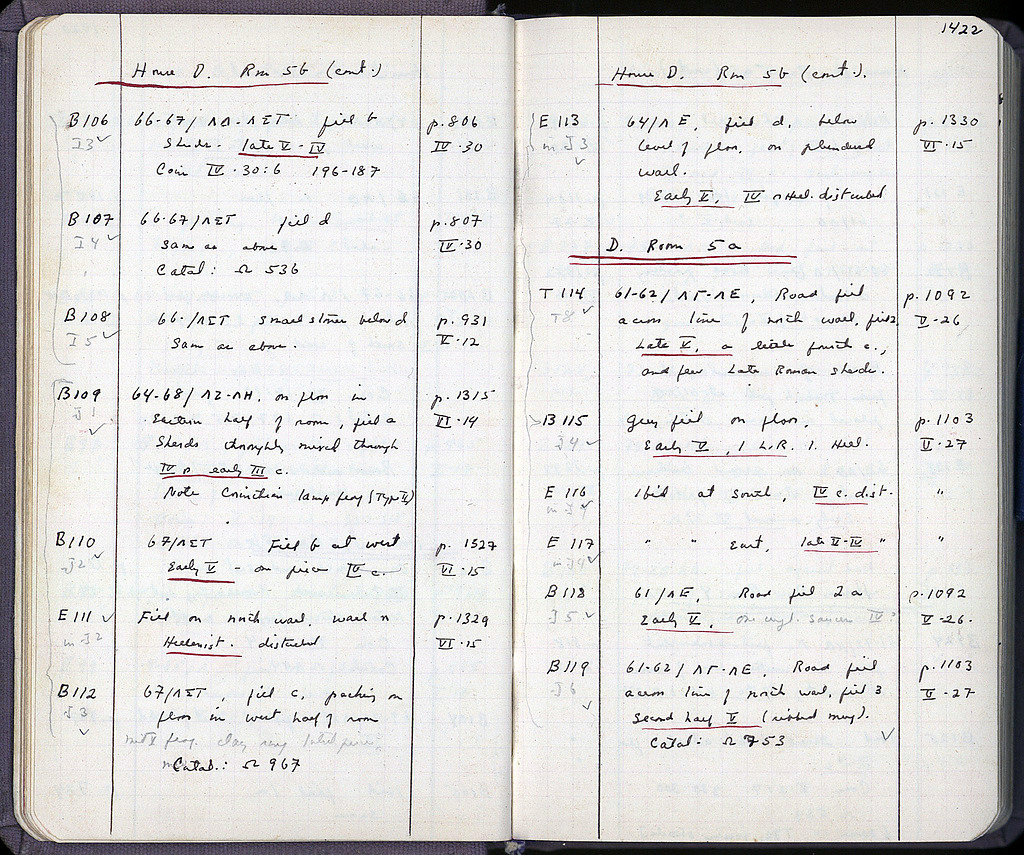 1422
House D. Rm 5b (cont.)
B106 66-67/ΛΔ-ΛΣΤ fill b p.806
I3 Sherds. late V - IV IV·30
Coin IV·30:6 196-187
B107 66-67/ΛΣΤ fill d p.807
I4 Same as above IV·30
Catal: Ω 536
B108 66·/ΛΣΤ small stones below d p.931
I5 Same as above. V·12
B109 64-68/ΛΖ-ΛΗ, on floor in p.1315
J1 Eastern half of room, fill a VI·14
Sherds thoroughly mixed through
IV to early III c.
Note Corinthian lamp frag (Type II)
B110 67/ΛΣΤ Fill b at west p. 1327
J2 Early V - one piece IV c. VI·15
E111 Fill on north wall, wall n p.1329
m J2 Hellenist. disturbed VI·15
B112 67/ΛΣΤ, fill c, packing on
J3 floor in west half of room
frag. clay ring
Catal.: Ω 967
House D. Rm 5b (cont.).
E113 64/ΛΕ, fill d, below p. 1330
m J3 level of floor, on plundered VI·15
wall.
Early V, IV + Hel. disturbed
D. Room 5a
T114 61-62/ΛΓ-ΛΕ, Road fill p.1092
T8 across line of north wall, fill 2 V-26
Late V, a little fourth c.,
and few Late Roman sherds.
B115 grey fill on floor, p.1103
J4 Early IV, 1 L.R. 1 Hel. V-27
E116 Ibid at south, IV c. dist. "
m J4
E117 " " East, late V-IV " "
m J4
B118 61/ΛΕ, Road fill 2a p.1092
J5 Early V, one saucer IV? V-26.
B119 61-62/ΛΓ-ΛΕ, Road fill p.1103
J6 across line of north wall, fill 3 V-27
Second half V (ribbed mug).
Catal: Ω 753